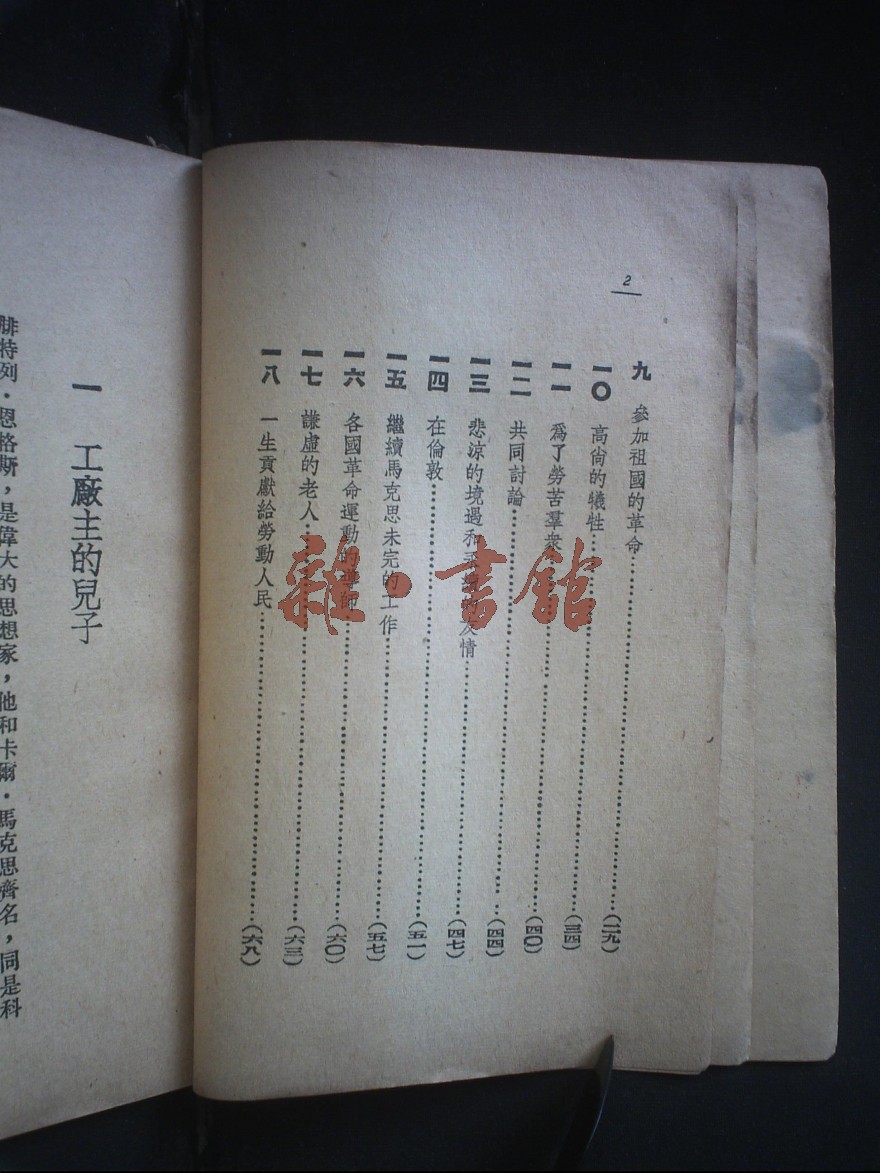 2
九 參加祖國的革命……(二九)
一〇 高尚的犧牲……(三四)
一一 爲了勞苦羣衆……(四〇)
一二 共同討論……(四四)
一三 悲涼的境遇和 的友情……(四七)
一四 在倫敦……(五一)
一五 繼續馬克思未完的工作……(五七)
一六 各國革命運動的導師……(六〇)
一七 謙虛的老人……(六三)
一八 一生貢獻給勞動人民……(六八)
一 工廠主的兒子
腓特列·恩格斯，是偉大的思想家，他和卡爾·馬克思齊名，同是科
雜·書館